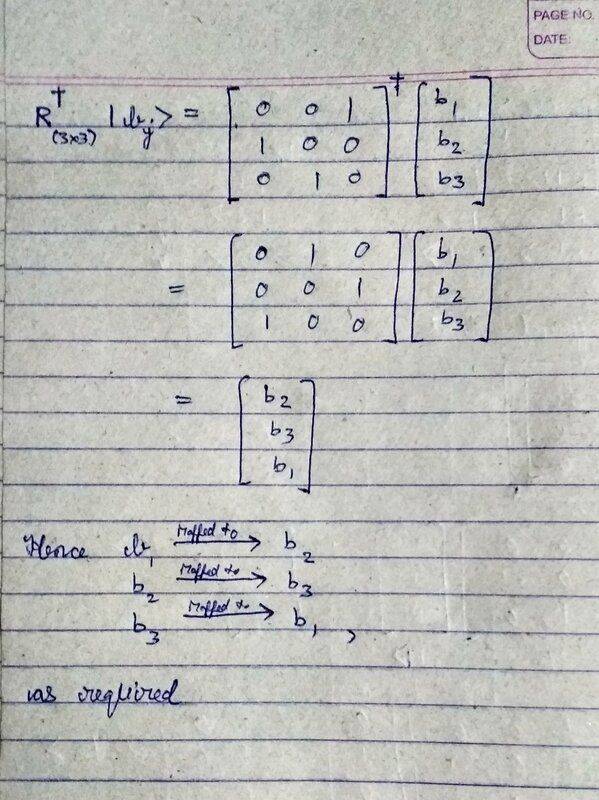 PAGE NO.
DATE:
R†(3×3) |b_y> = [ 0 0 1 ]† [ b1 ]
1 0 0 b2
0 1 0 b3
= [ 0 1 0 ] [ b1 ]
0 0 1 b2
1 0 0 b3
= [ b2 ]
b3
b1
Hence b1 mapped to → b2
b2 mapped to → b3
b3 mapped to → b1 ,
as required